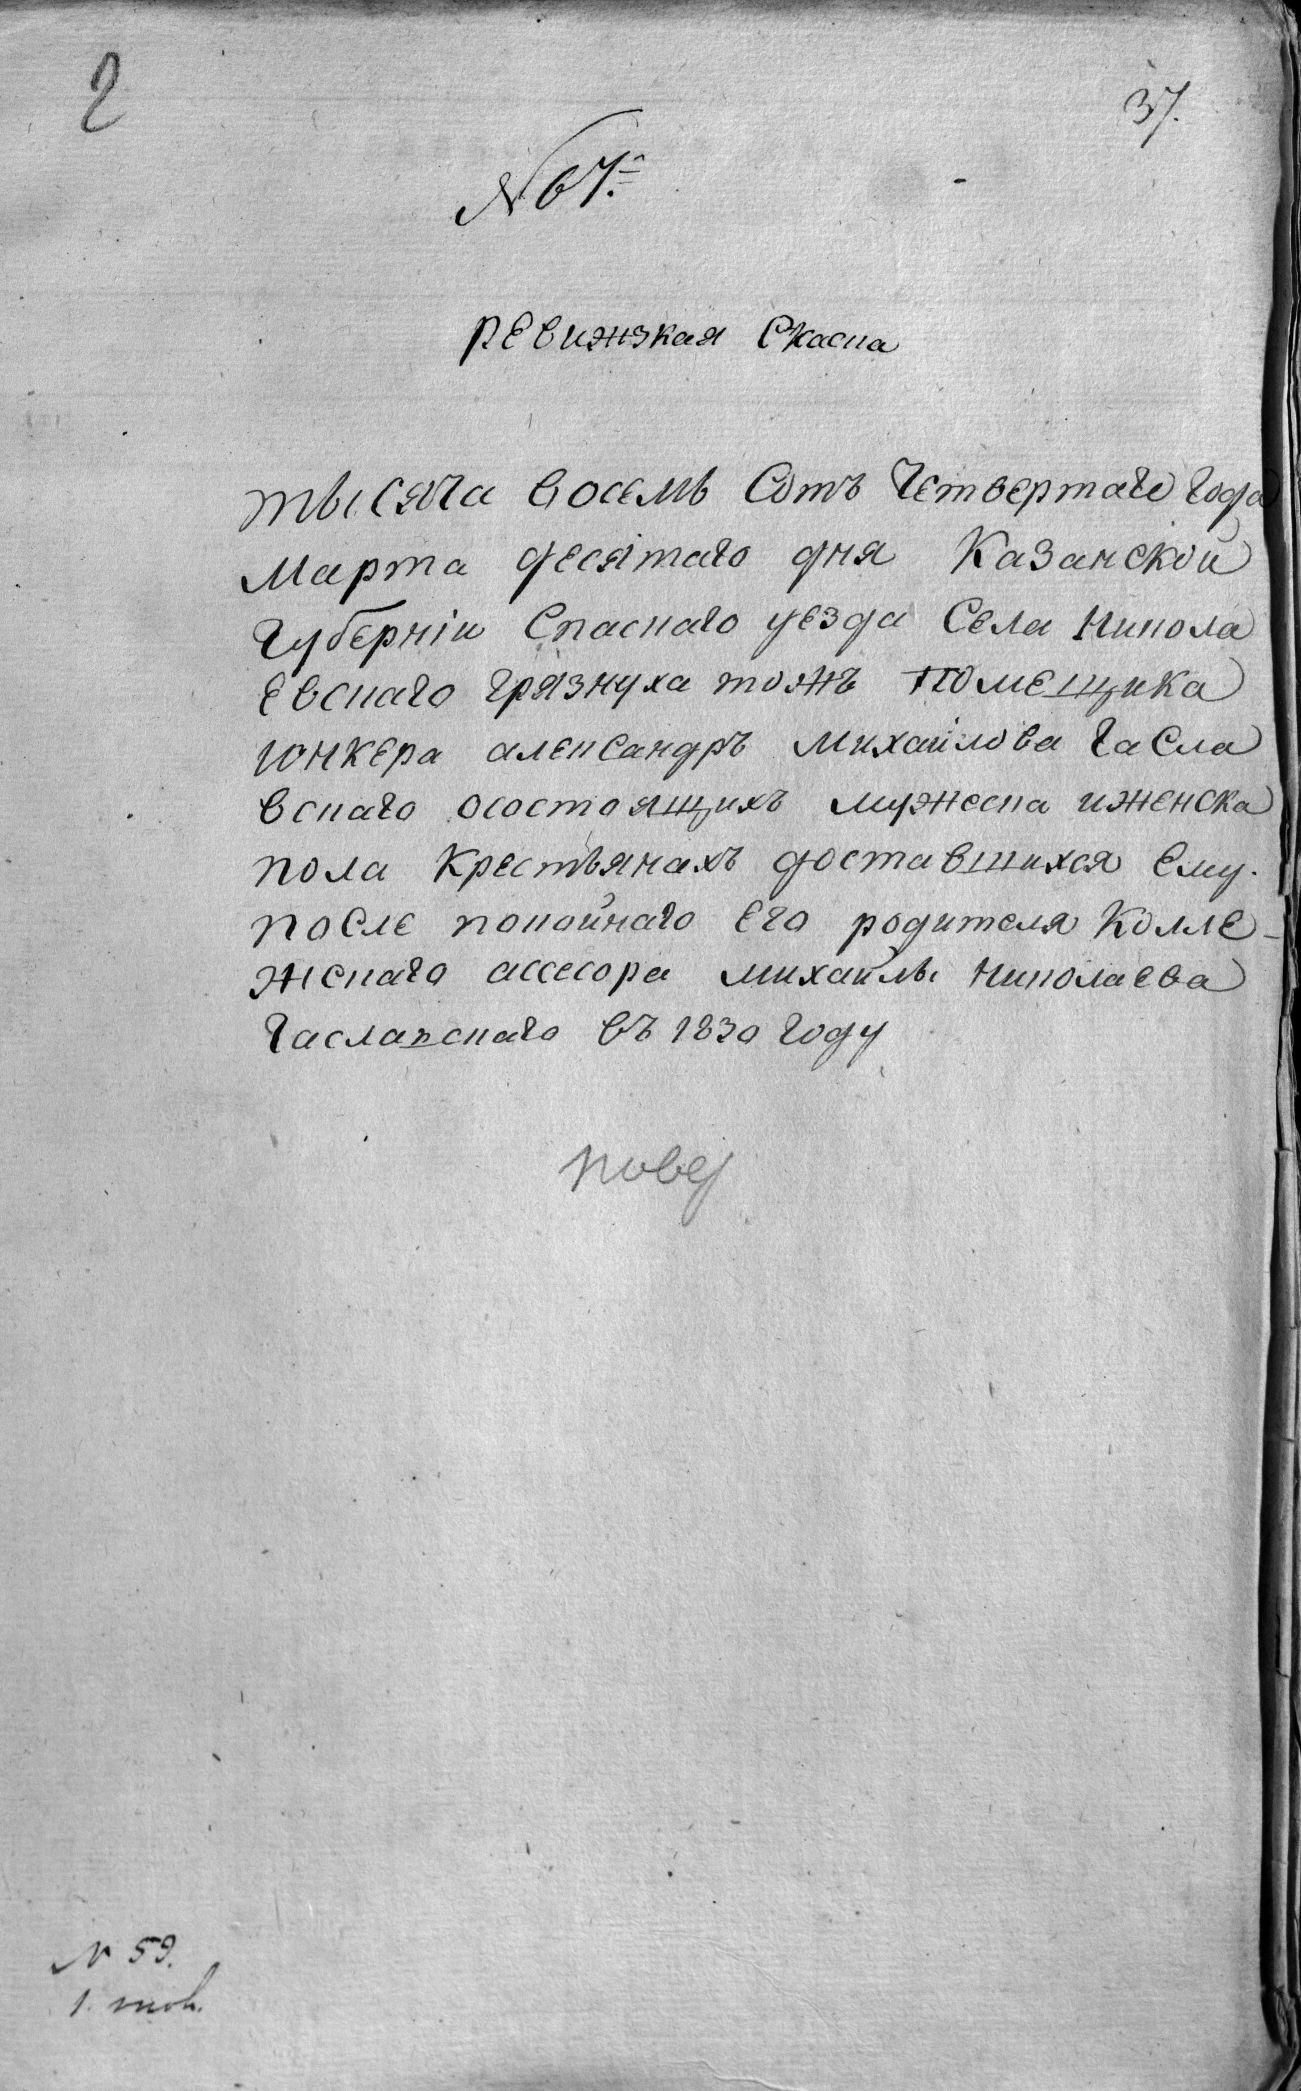 2
37.
№ 67.
Ревижзкая Скаска
тысяча восемь Сотъ Четвертаго года
Марта десятаго дня Казанской
Губерніи Спаскаго уезда Села Никола
евскаго грязнуха тожъ Помещика
юнкера александръ Михайлова Гасла
вскаго осостоящихъ мужеска иженска
пола Крестьянахъ доставшихся ему
после покойнаго Его родителя Колле-
жскаго ассесора михайлы Николаева
Гаславскаго въ 1830 году
№ 59.